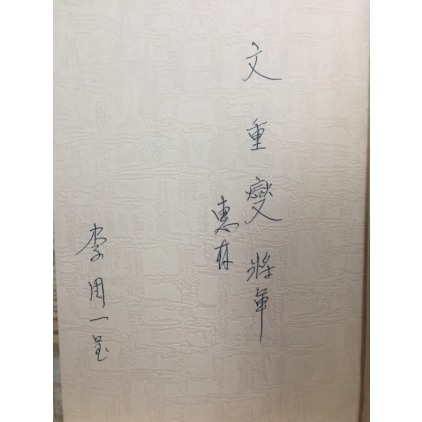 文重燮將軍
惠存
李周一呈